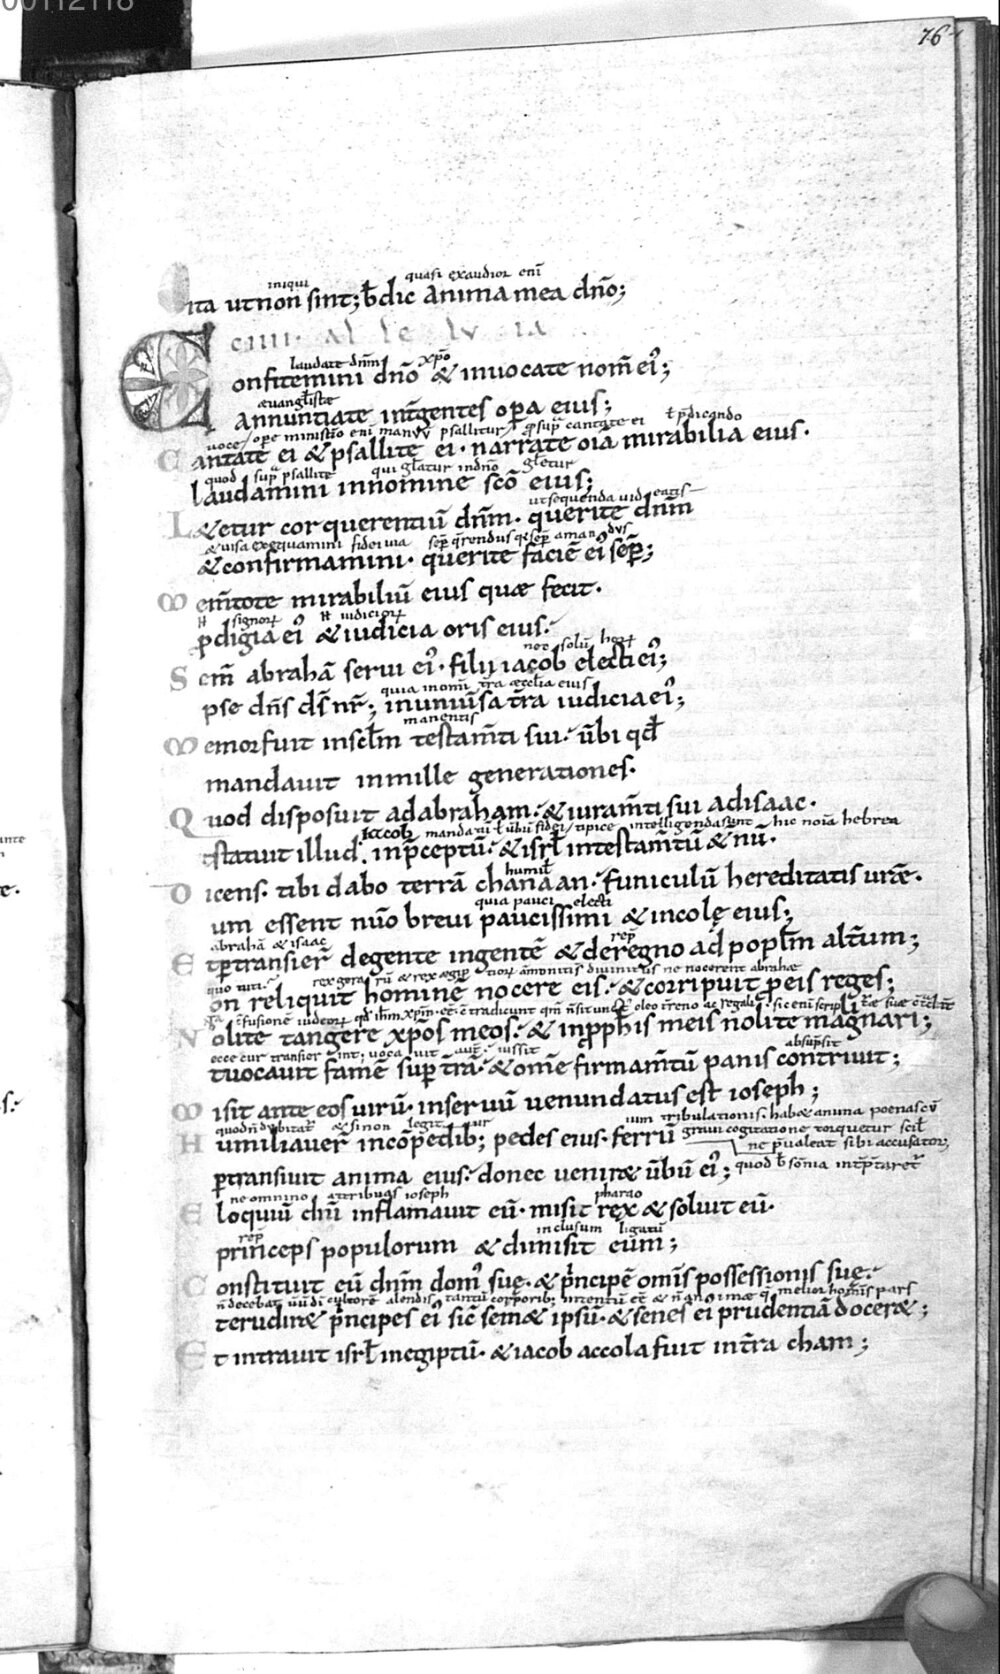 00112118
76
iniqui quasi exaudior eni̅
ita ut non sint; b̅dic anima mea dn̅o;
ciiii. al le lu ia
laudate dn̅m xp̅o
Confitemini dn̅o & inuocate nom̅ ei᾽;
æuangl̅iste
annuntiate int̅ gentes op̅a eius;
uoce ope ministro eni̅ manuu̅ psallitur cantate ei p̅dicando
Cantate ei & psallite ei· narrate oi̅a mirabilia eius·
quod sup̅ psallite qui gl̅atur in dn̅o gl̅etur
laudamini in nomine sc̅o eius;
ut sequenda uideatis
L&etur cor querentiu̅ dn̅m· querite dn̅m
& uisa exequamini fidei uia sep̅ q̅rendus q̅ sep̅ amandus
& confirmamini· querite facie̅ ei᾽ sep̅;
Mem̅tote mirabiliu̅ eius quæ fecit·
signor̅ iudicior̅
p̅digia ei᾽ & iudicia oris eius·
non solu̅ heor̅
Sem̅ abraha̅ serui ei᾽· filij iacob electi ei᾽;
quia in om̅i t̅ra æccl̅ia eius
pse dn̅s ds̅ nr̅; in uniu̅sa t̅ra iudicia ei᾽;
manentis
Memor fuit in sclm̅ testam̅ti sui· u̅bi qd̅
mandauit in mille generationes·
Quod disposuit ad abraham· & iuram̅ti sui ad isaac·
iacob mandatu̅ l̅ u̅bu̅ fidei tipice intelligenda sunt hic noi̅a hebrea
& statuit illud in p̅ceptu̅· & isrl̅ in testam̅tu̅ & nu̅·
humil̅
Dicens· tibi dabo terra̅ chanaan· funiculu̅ hereditatis ur̅æ·
quia pauci electi
um essent nu̅o breui paucissimi & incolę eius;
abraha̅ & isaac rep̅
Et p̅transier̅ de gente in gente̅ & de regno ad popl̅m alt̅um;
quo tuti· rex geraru̅ & rex ægip̅tior̅ am̅onitis diuinitus ne nocerent abrahæ
on reliquit homine̅ nocere eis· & corripuit p̅ eis reges;
Nolite tangere xp̅os meos· & in pp̅his meis nolite magnari;
ecce cur transierint; uocauit iussit absu̅psit
& uocauit fame̅ sup̅ t̅ra̅· & om̅e firmam̅tu̅ panis contriuit;
Misit ante eos uiru̅· in seruu̅ uenundatus est ioseph;
tribulationis· hab& anima poenas cu̅
Humiliauer̅ in co̅pedib᾽; pedes eius· ferru̅ graui cogitatione torquetur scil̅
ne p̅ualeat sibi accusator,
p̅transiuit anima eius· donec ueniræ u̅bu̅ ei᾽; quod b̅ so̅nia int̅p̅taret̅
ne omnino attribuas ioseph pharao
Eloquiu̅ dn̅i inflamauit eu̅· misit rex & soluit eu̅·
rep̅ inclusum ligatu̅
princeps populorum & dimisit eum;
Constituit eu̅ dn̅m dom᾽ suę· & p̅ncipe̅ om̅is possessionis suę·
t erudir& p̅ncipes ei᾽ sic̅ sem& ipsu̅· & senes ei᾽ prudentia̅ docer&;
Et intrauit isrl̅ in egiptu̅· & iacob accola fuit in t̅ra cham;